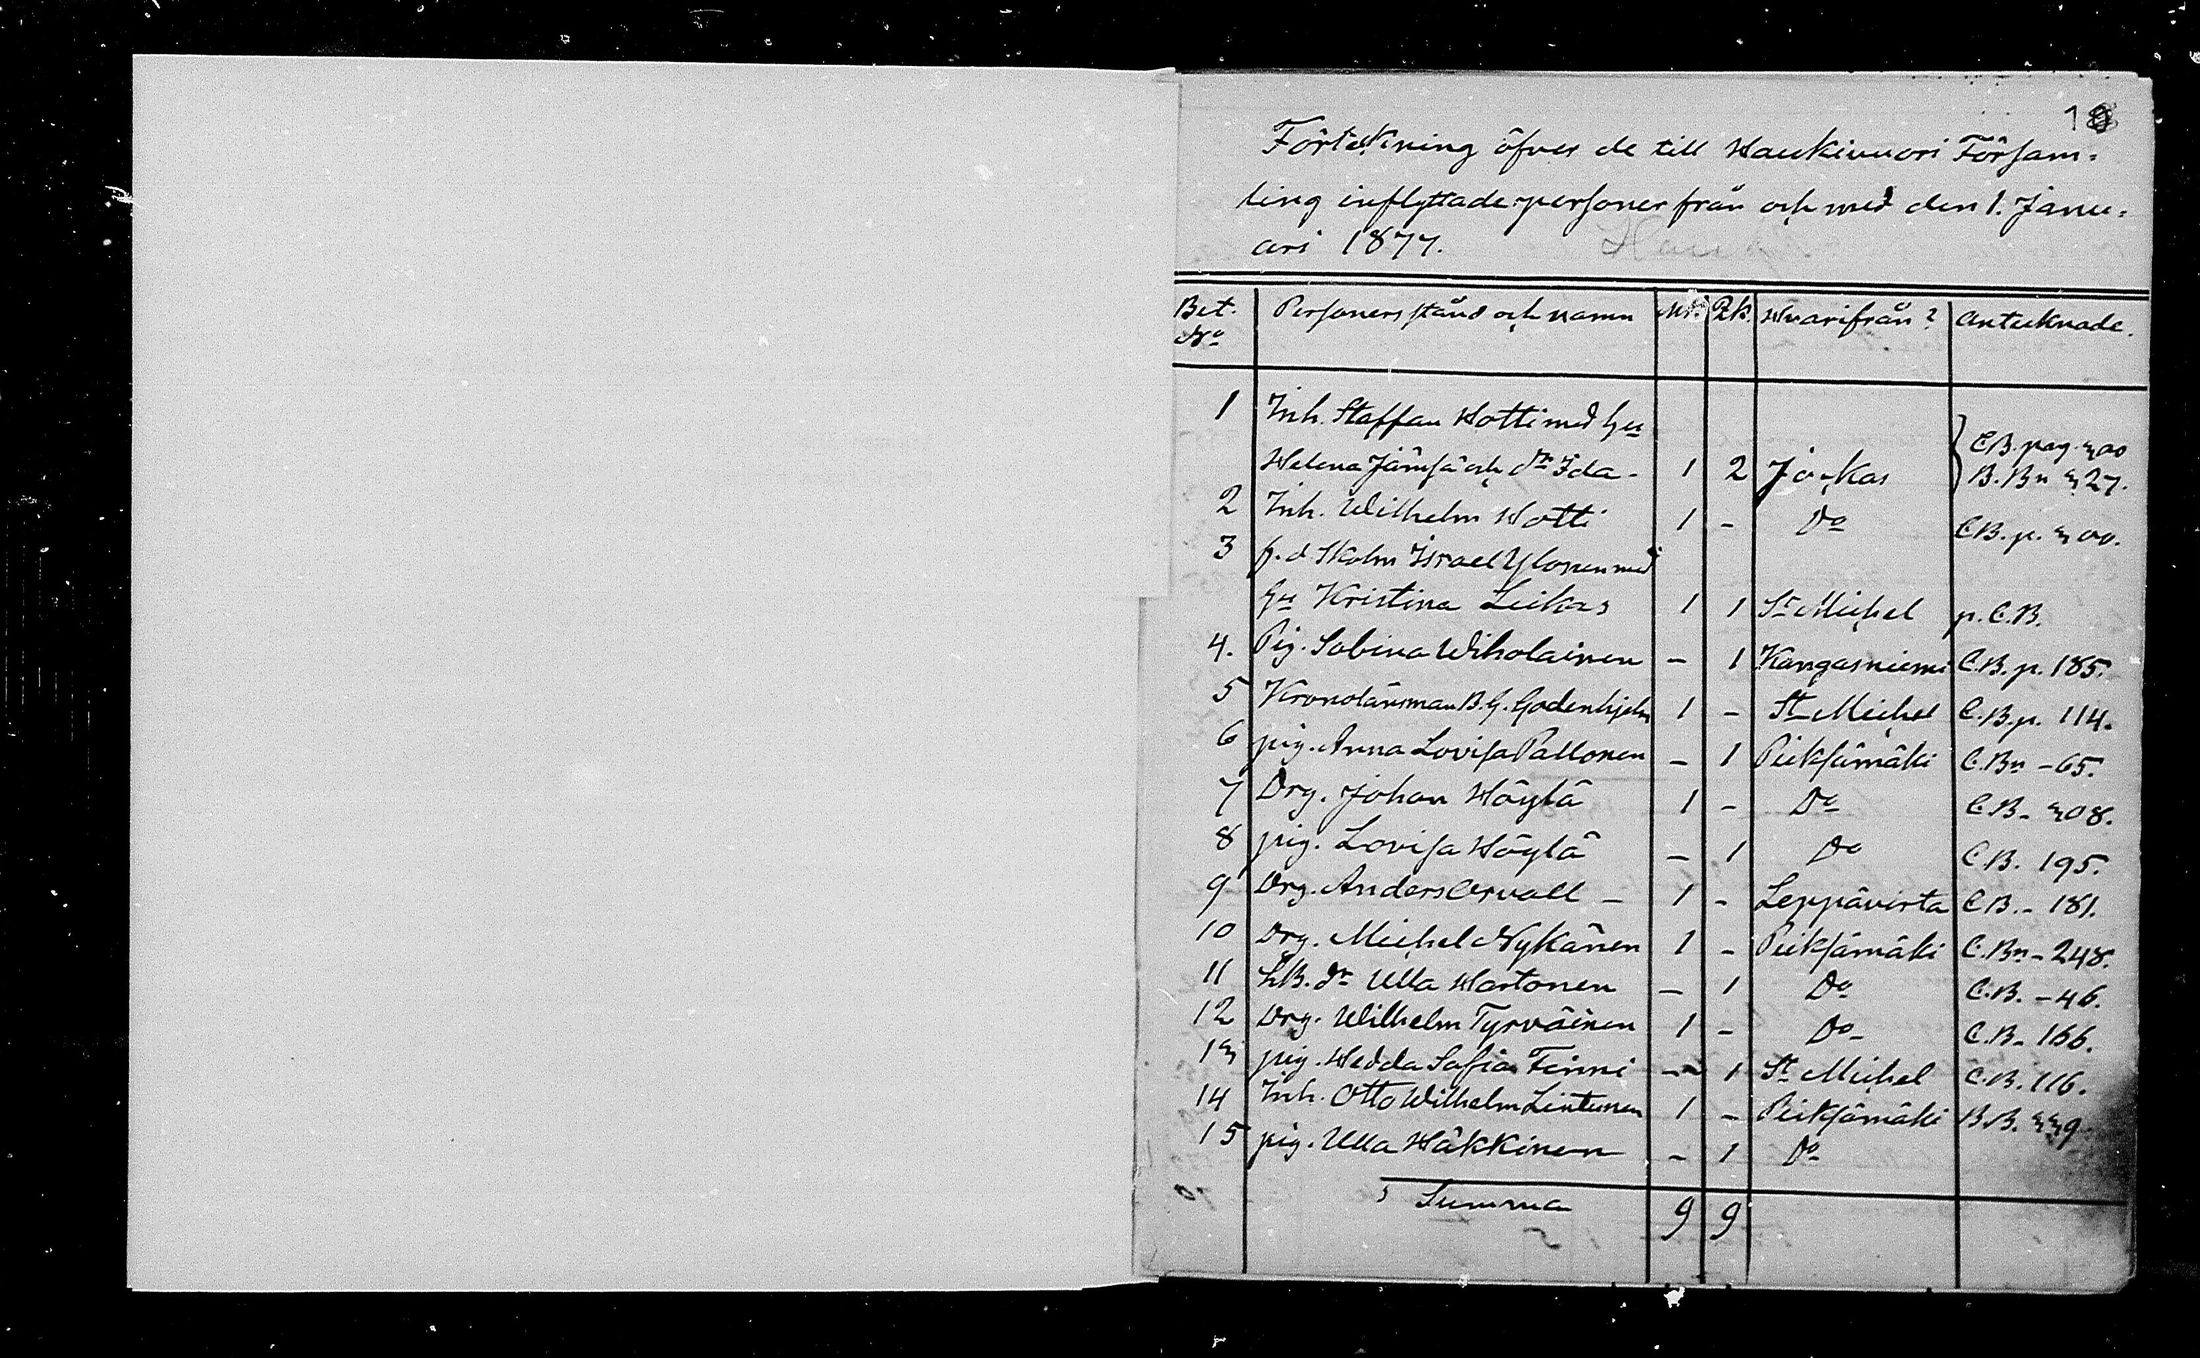 18
Förtekning öfver de till Haukivuori Försam-
ling inflyttade personer från och med den 1. Janu-
ari 1877.
Bet. No Personers stånd och namn Mk. Qk. Hvarifrån? Antecknade.
1 Inh. Staffan Hotti med hu
Helena Jämsä och dr Ida - 1 2 Jockas C.B. pag. 300 B.Bn 327.
2 Inh. Wilhelm Hotti 1 - Do C.B. p. 300.
3 f.d Skolm Israel Ylönen med
hu Kristina Leikas 1 1 St Michel p. C.B.
4. Pig. Sabina Wiholainen - 1 Kangasniemi C.B. p. 185.
5 Kronolänsman B.G. Godenhjelm 1 - St Michel C.B.p. 114.
6 pig. Anna Lovisa Pallonen - 1 Pieksämäki C.Bn - 65.
7 Drg. Johan Höylä 1 - Do C.B. 308.
8 pig. Lovisa Höylä - 1 Do C.B. 195.
9 Drg. Anders Orvall - 1 - Leppävirta C.B. - 181.
10 Drg. Michel Nykänen 1 - Pieksämäki C.Bn - 248.
11 LB. dr Ulla Hartonen - 1 Do C.B. - 46.
12 Drg. Wilhelm Tyrväinen 1 - Do C.B. 166.
13 pig. Hedda Sofia Finni - 1 St Michel C.B. 116.
14 Inh. Otto Wilhelm Lintunen 1 - Pieksämäki B.B. 339
15 pig. Ulla Häkkinen - 1 Do
Summa 9 9